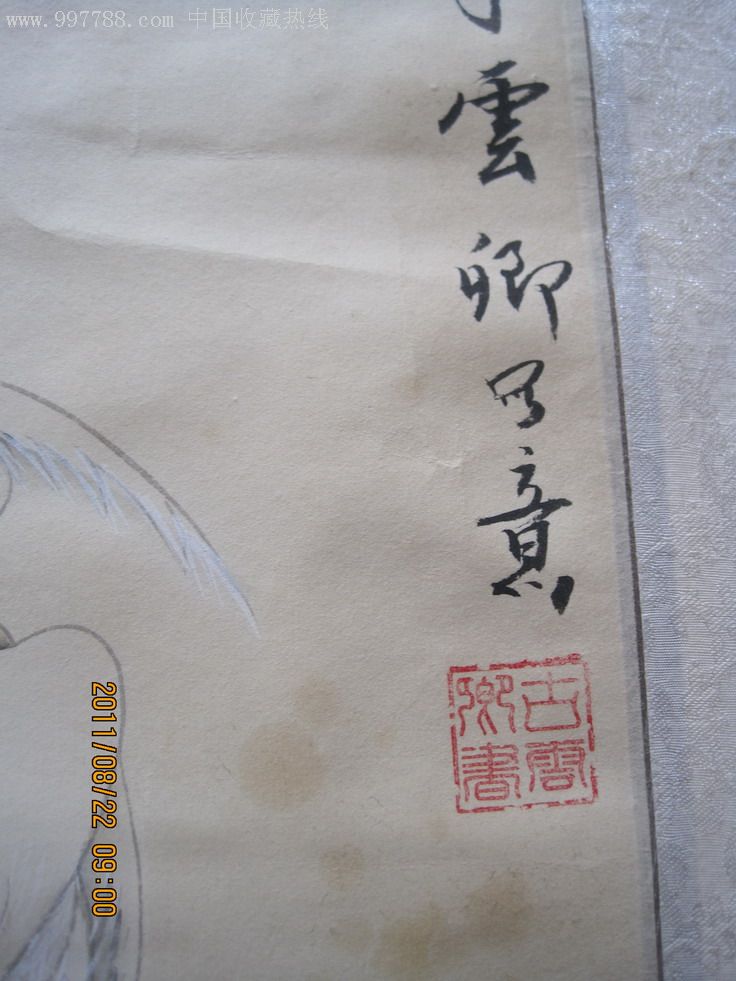 www.997788.com 中国收藏热线
雲卿写意
古雲卿書
2011/08/22 09:00